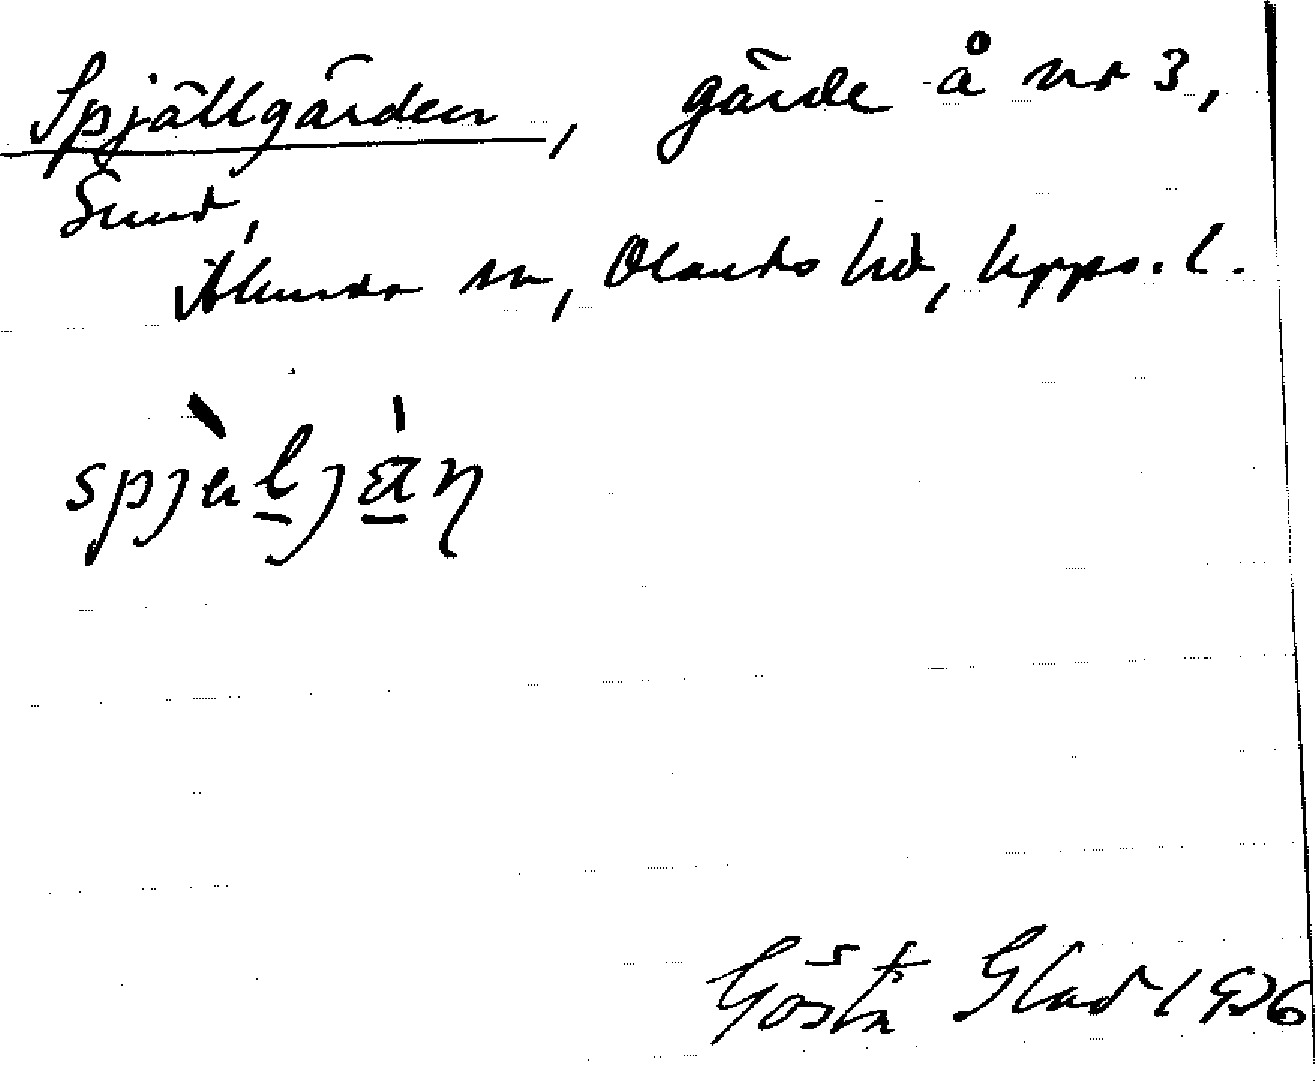 Spjällgärden, gärde å nr 3,
Sund,
Alunda sn, Olands hd, Upps. l.
Gösta Glad 1936